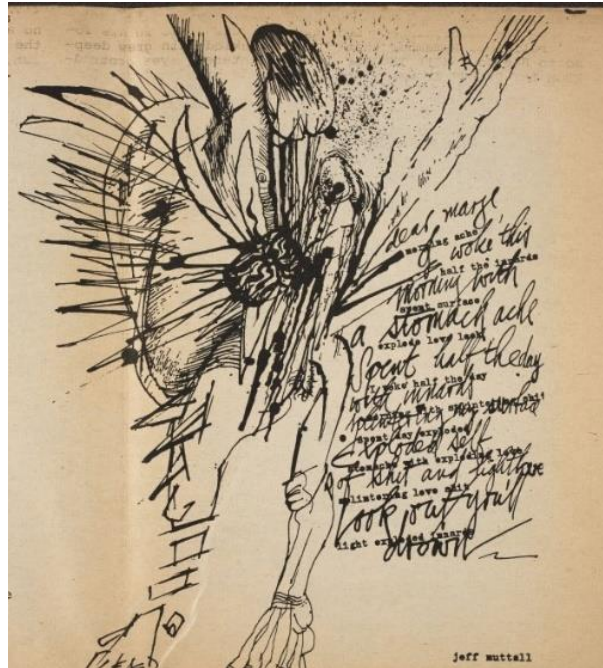 dear marge,
morning ache
I woke this
half the innards
morning with
spent surface
a stomach ache
explode love look
Spent half the day
I woke half the day
with innards
morning with shit
spent day exploded
exploded self
with exploding
of shit and light love
splintering love shit
look out you'll
light exploded innards
drown
jeff nuttall